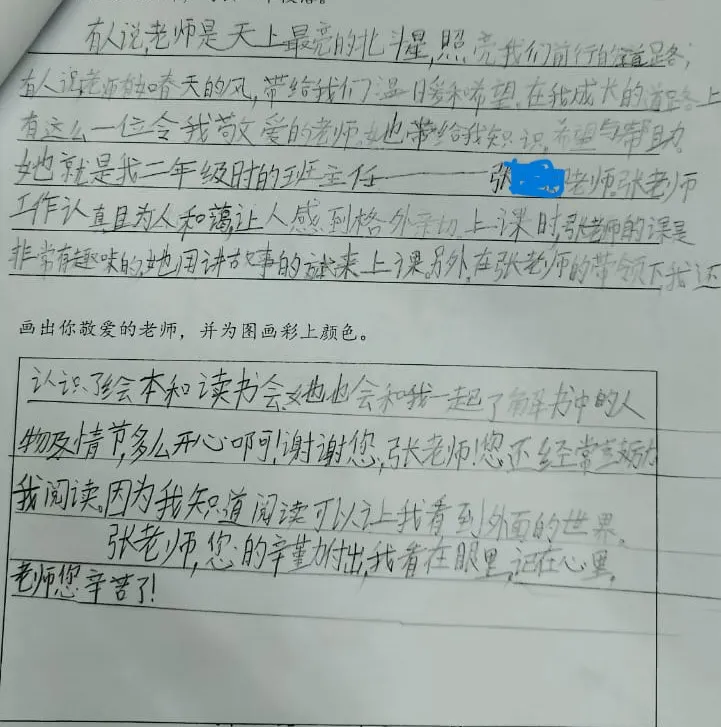 有人说,老师是天上最亮的北斗星,照亮我们前行的道路;
有人说,老师有如春天的风,带给我们温暖和希望。在我成长的道路上
有这么一位令我敬爱的老师,她带给我知识,希望与帮助。
她就是我二年级时的班主任——张 老师。张老师
工作认真且为人和蔼,让人感到格外亲切。上课时,张老师的课是
非常有趣味的,她用讲故事的方式来上课。另外,在张老师的带领下,我还
画出你敬爱的老师,并为图画彩上颜色。
认识了绘本和读书会,她也会和我一起了解书中的人
物及情节,多么开心啊!谢谢您,张老师!您还经常鼓励
我阅读。因为我知道阅读可以让我看到外面的世界。
张老师,您的辛勤付出,我看在眼里,记在心里。
老师您辛苦了!